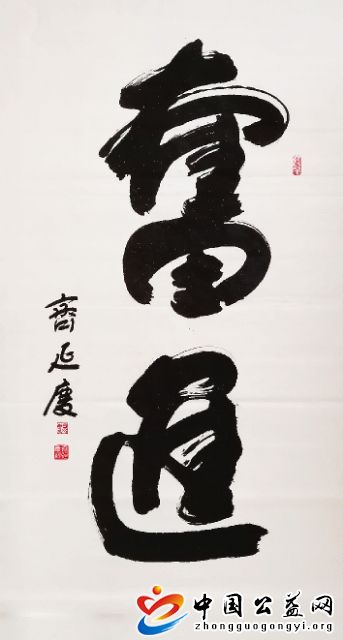 奮進
齊延慶
中国公益网
zhongguogongyi.org